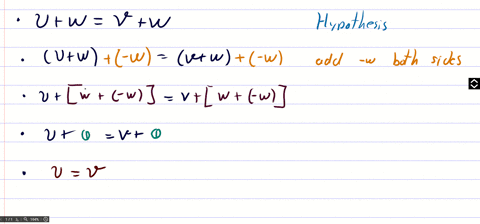 • v+w = v+w Hypothesis
• (v+w) +(-w) = (v+w) +(-w) add -w both sides
• v+[w+(-w)] = v+[w+(-w)]
• v+0 = v+0
• v = v